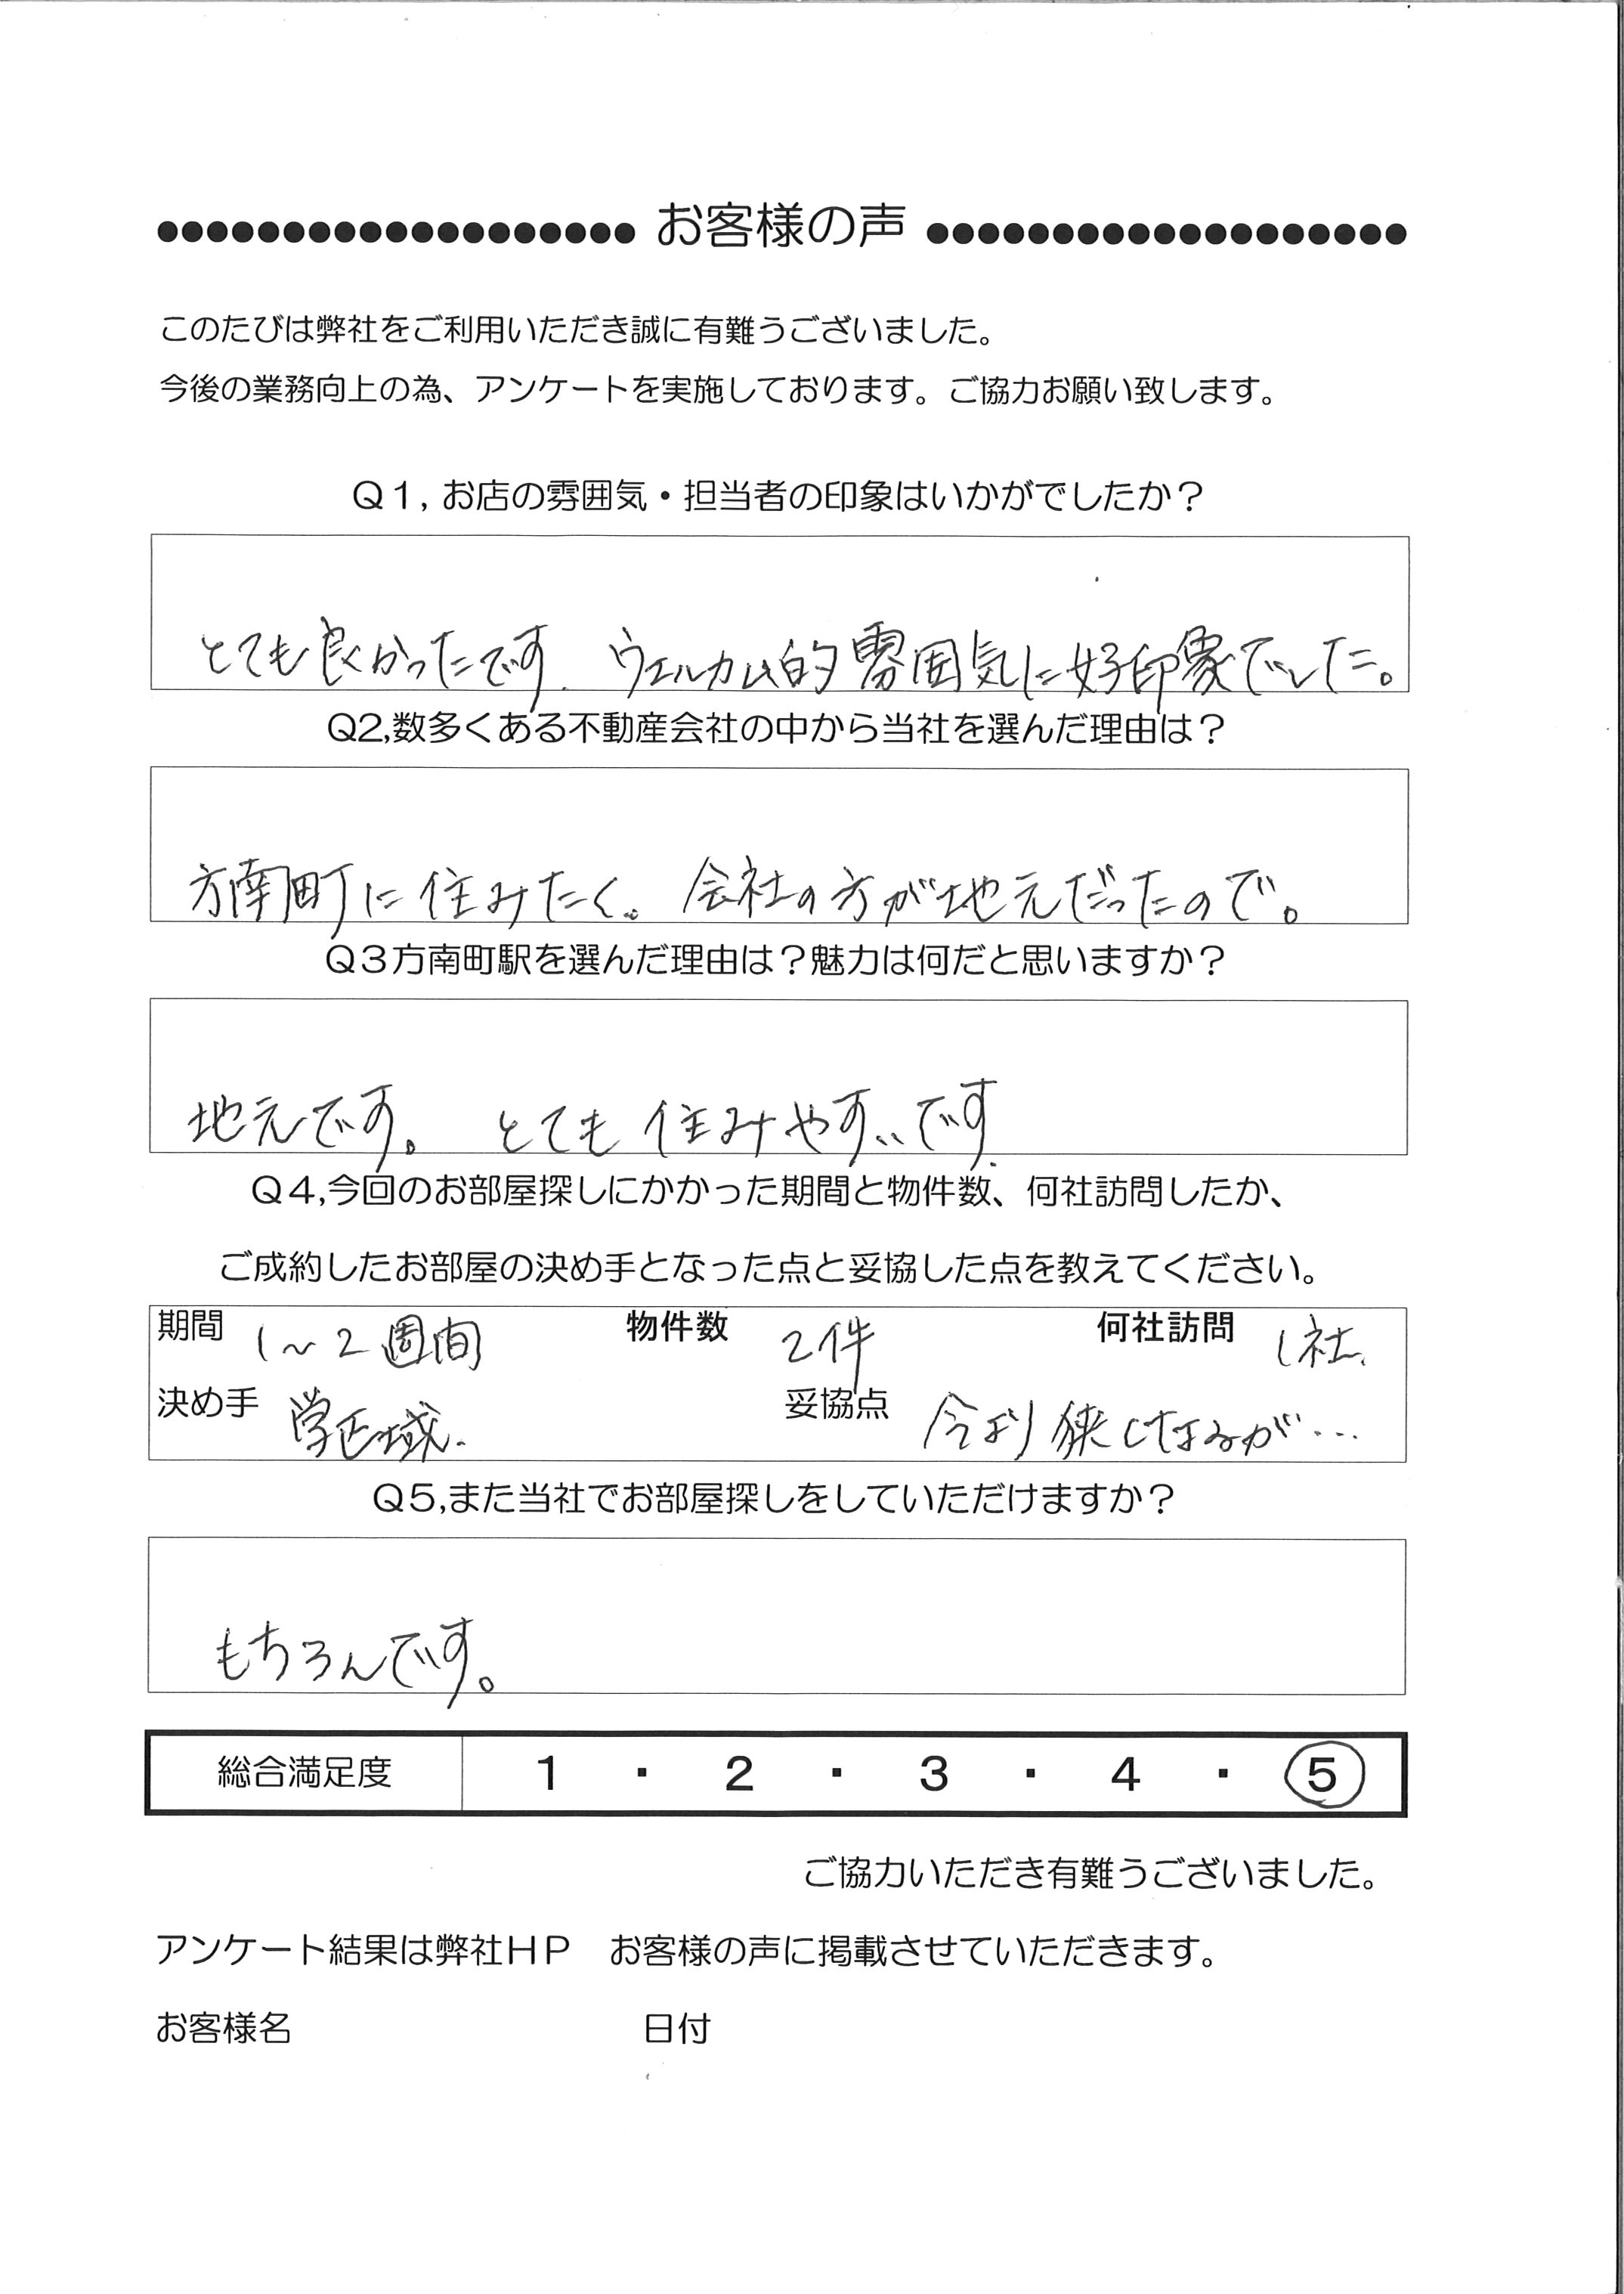 ●●●●●●●●●●●●●●●●●●● お客様の声 ●●●●●●●●●●●●●●●●●●●
このたびは弊社をご利用いただき誠に有難うございました。
今後の業務向上の為、アンケートを実施しております。ご協力お願い致します。
Q1,お店の雰囲気・担当者の印象はいかがでしたか？
とても良かったです. ウェルカム的雰囲気に好印象でした。
Q2,数多くある不動産会社の中から当社を選んだ理由は？
方南町に住みたく。会社の方が地元だったので。
Q3方南町駅を選んだ理由は？魅力は何だと思いますか？
地元です。 とても住みやすいです.
Q4,今回のお部屋探しにかかった期間と物件数、何社訪問したか、
ご成約したお部屋の決め手となった点と妥協した点を教えてください。
期間 1～2週間 物件数 2件 何社訪問 1社.
決め手 学区域. 妥協点 今より狭くはなるが…
Q5,また当社でお部屋探しをしていただけますか？
もちろんです。
総合満足度 1 ・ 2 ・ 3 ・ 4 ・ 5
ご協力いただき有難うございました。
アンケート結果は弊社HP お客様の声に掲載させていただきます。
お客様名 日付